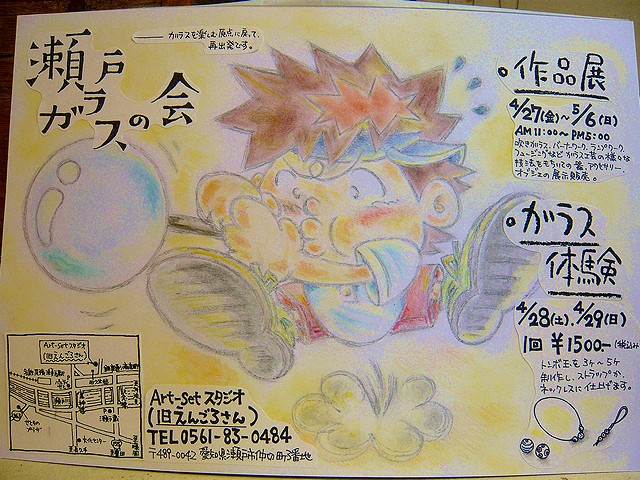 瀬戸
ガラスの会
── ガラスを楽しむ原点に戻って、
再出発です。
・作品展
4/27(金)〜5/6(日)
AM11:00〜PM5:00
吹きガラス、バーナーワーク、ランプワーク、
フュージングなどガラス工芸の様々な
技法をもちいての器、アクセサリー、
オブジェの展示販売。
・ガラス
体験
4/28(土)、4/29(日)
1回 ¥1500-(税込み)
トンボ玉を3ケ〜5ケ
制作し、ストラップか、
ネックレスに仕上げます。
Art-Set スタジオ
(旧えんごろさん)
Art-Set スタジオ
(旧えんごろさん)
TEL 0561-83-0484
〒489-0042 愛知県瀬戸市仲切町3番地